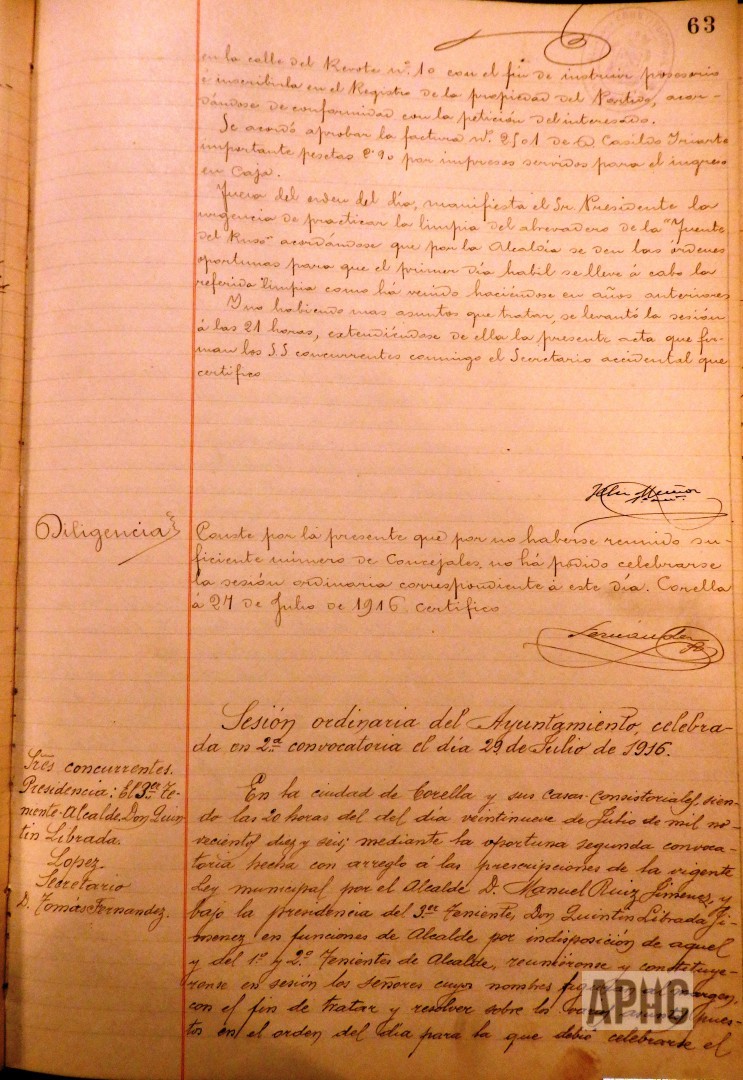 63
en la calle del Revote nº. 10 con el fin de instruir posesorio
é inscribirla en el Registro de la propiedad del Partido, acor-
dándose de conformidad con la petición del interesado.
Se acordó aprobar la factura nº. 2501 de D. Casildo Iriarte
importante pesetas 8'90 por impresos servidos para el ingreso
en Caja.
Fuera del orden del día, manifiesta el Sr. Presidente la
urgencia de practicar la limpia del abrevadero de la "Fuente
del Ruso" acordándose que por la Alcaldía se den las órdenes
oportunas para que el primer día habil se lleve á cabo la
referida limpia como há venido haciéndose en años anteriores
Y no habiendo mas asuntos que tratar, se levantó la sesión
á las 21 horas, extendiéndose de ella la presente acta que fir-
man los SS concurrentes conmigo el Secretario accidental que
certifico
Muñoz
Diligencia
Conste por la presente que por no haberse reunido su-
ficiente número de Concejales no há podido celebrarse
la sesión ordinaria correspondiente á este día. Corella
á 27 de Julio de 1916 certifico
Fernandez
Sesión ordinaria del Ayuntamiento, celebra-
da en 2ª convocatoria el día 29 de Julio de 1916.
Sres concurrentes.
Presidencia: El 3er Te-
niente-Alcalde Don Quin-
tín Librada.
Lopez.
Secretario
D. Tomás Fernandez.
En la ciudad de Corella y sus casas Consistoriales, sien-
do las 20 horas del del dia veintinueve de Julio de mil no-
vecientos diez y seis; mediante la oportuna segunda convoca-
toria hecha con arreglo á las prescripciones de la vigente
Ley municipal por el Alcalde D. Manuel Ruiz Jimenez, y
bajo la presidencia del 3er Teniente, Don Quintín Librada Ji-
menez en funciones de Alcalde por indisposición de aquel
y del 1º y 2º Tenientes de Alcalde, reuniéronse y constituye-
ronse en sesión los señores cuyos nombres figuran al margen,
con el fin de tratar y resolver sobre los varios asuntos pues-
tos en el orden del día para la que debió celebrarse el
APHC